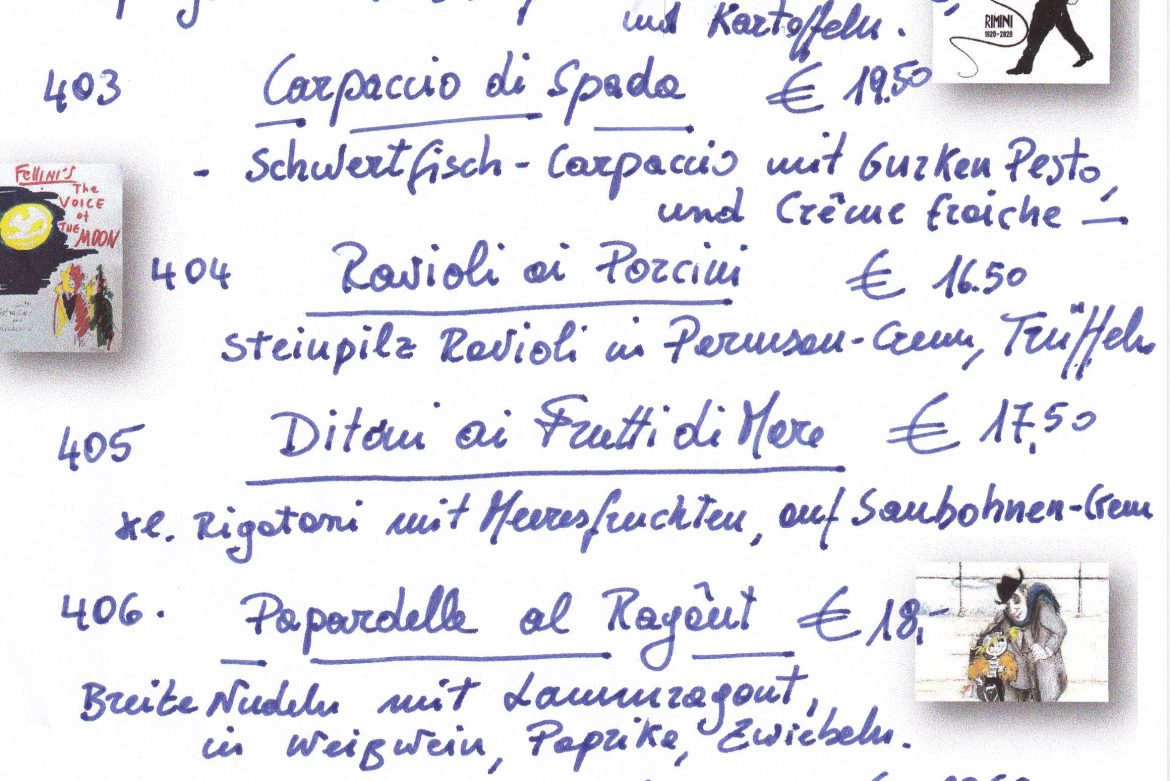 mit Kartoffeln.
RIMINI
1920-2020
403 Carpaccio di Spada € 19.50
- Schwertfisch-Carpaccio mit Gurken Pesto,
und Crême fraiche -
FELLINI'S
The
VOICE
of
THE MOON
404 Ravioli ai Porcini € 16.50
Steinpilz Ravioli in Parmesan-Creme, Trüffeln
405 Ditoni ai Frutti di Mare € 17,50
kl. Rigatoni mit Meeresfruchten, auf Saubohnen-Creme
406. Papardelle al Ragôut € 18,-
Breite Nudeln mit Lammragout,
in Weißwein, Paprika, Zwiebeln.